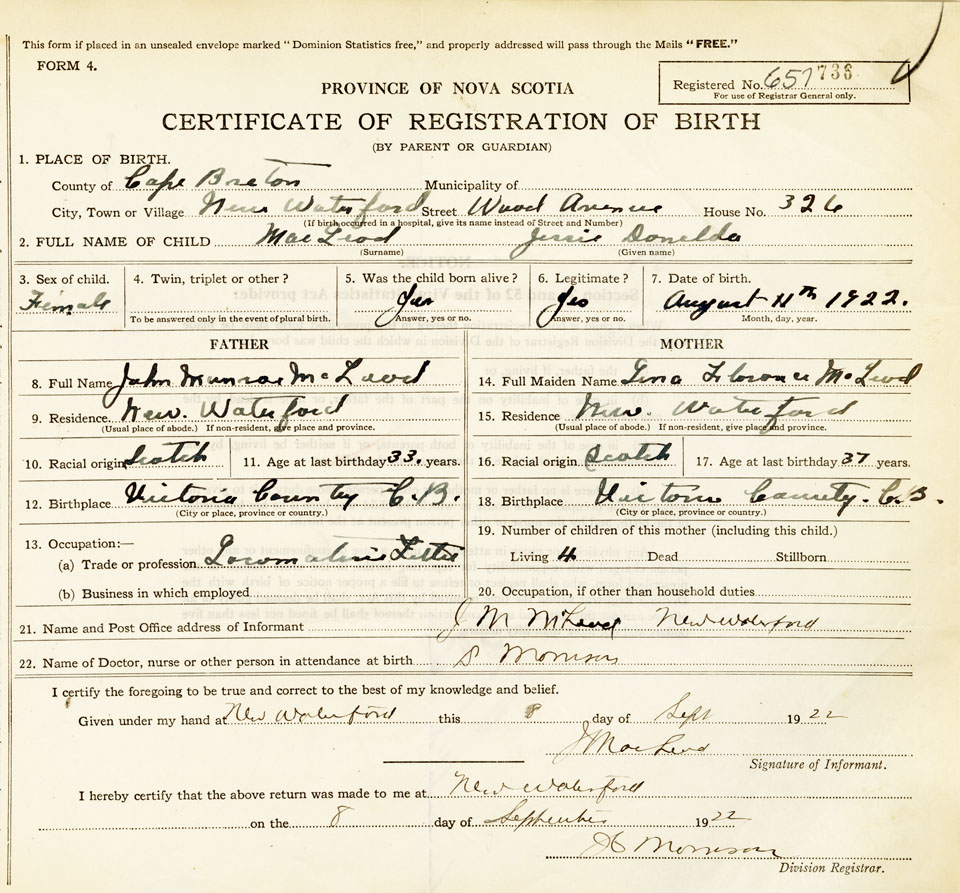 This form if placed in an unsealed envelope marked "Dominion Statistics free," and properly addressed will pass through the Mails "FREE."
FORM 4.
Registered No. 657 736
For use of Registrar General only.
PROVINCE OF NOVA SCOTIA
CERTIFICATE OF REGISTRATION OF BIRTH
(BY PARENT OR GUARDIAN)
1. PLACE OF BIRTH.
County of Cape Breton Municipality of
City, Town or Village New Waterford Street Wood Avenue House No. 326
(If birth occurred in a hospital, give its name instead of Street and Number)
2. FULL NAME OF CHILD MacLeod Jessie Donelda
(Surname) (Given name)
3. Sex of child. 4. Twin, triplet or other? 5. Was the child born alive? 6. Legitimate? 7. Date of birth.
Female Yes Yes August 11th 1922.
To be answered only in the event of plural birth. Answer, yes or no. Answer, yes or no. Month, day, year.
FATHER MOTHER
8. Full Name John Munroe McLeod 14. Full Maiden Name Florence McLeod
9. Residence New. Waterford 15. Residence New. Waterford
(Usual place of abode.) If non-resident, give place and province. (Usual place of abode.) If non-resident, give place and province.
10. Racial origin Scotch 11. Age at last birthday 33. years. 16. Racial origin Scotch 17. Age at last birthday 37 years.
12. Birthplace Victoria County C.B. 18. Birthplace Victoria County. C.B.
(City or place, province or country.) (City or place, province or country.)
13. Occupation:— 19. Number of children of this mother (including this child.)
(a) Trade or profession Locomotive Fitter Living 4 Dead Stillborn
(b) Business in which employed 20. Occupation, if other than household duties
21. Name and Post Office address of Informant J M McLeod New Waterford
22. Name of Doctor, nurse or other person in attendance at birth S Morrison
I certify the foregoing to be true and correct to the best of my knowledge and belief.
Given under my hand at New Waterford this 8 day of Sept 1922
J MacLeod
Signature of Informant.
I hereby certify that the above return was made to me at New Waterford
on the 8 day of September 1922
Morrison
Division Registrar.